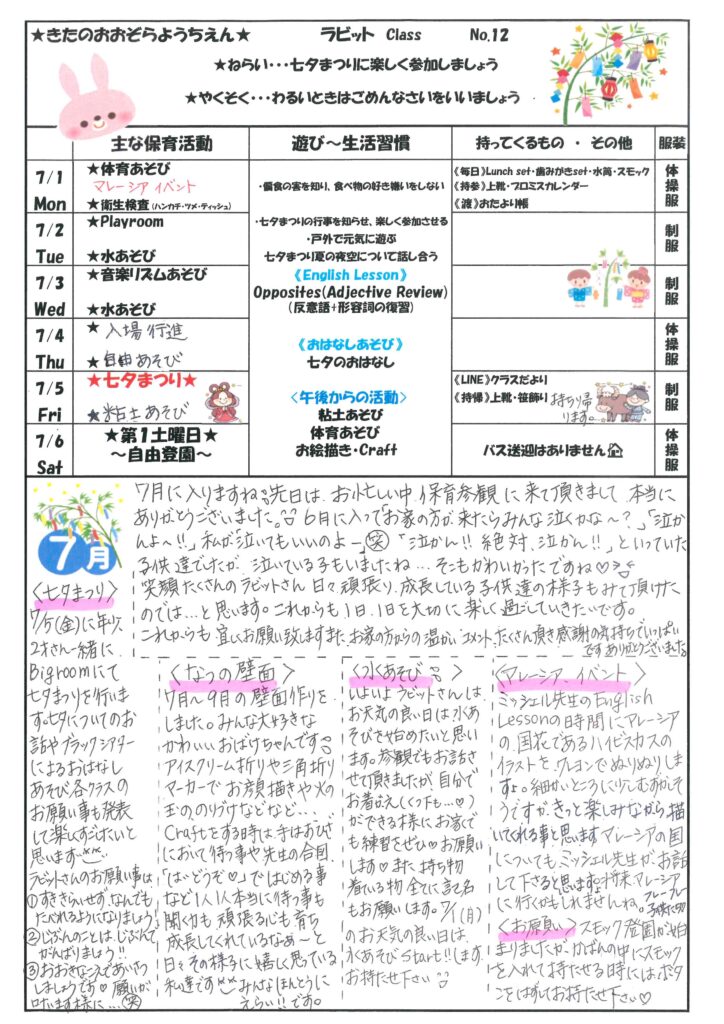 ★きたのおおぞらようちえん★ ラビット Class No.12
★ねらい・・・七夕まつりに楽しく参加しましょう
★やくそく・・・わるいときはごめんなさいをいいましょう
主な保育活動 遊び～生活習慣 持ってくるもの ・ その他 服装
7/1 Mon
★体育あそび
マレーシア イベント
★衛生検査(ハンカチ・ツメ・ティッシュ)
・偏食の害を知り、食べ物の好き嫌いをしない
《毎日》Lunch set・歯みがきset・水筒・スモック
《持参》上靴・プロミスカレンダー
《渡》おたより帳
体操服
7/2 Tue
★Playroom
★水あそび
・七夕まつりの行事を知らせ、楽しく参加させる
・戸外で元気に遊ぶ
七夕まつり夏の夜空について話し合う
制服
7/3 Wed
★音楽リズムあそび
★水あそび
《English Lesson》
Opposites(Adjective Review)
(反意語+形容詞の復習)
制服
7/4 Thu
★入場行進
★自由あそび
《おはなしあそび》
七夕のおはなし
体操服
7/5 Fri
★七夕まつり★
★粘土あそび
<午後からの活動>
粘土あそび
体育あそび
お絵描き・Craft
《LINE》クラスだより
《持帰》上靴・笹飾り 持ち帰ります。
制服
7/6 Sat
★第1土曜日★
～自由登園～
バス送迎はありません
体操服
7月
7月に入りますね。先日は、お忙しい中、保育参観に来て頂きまして、本当に
ありがとうございました。6月に入って「お家の方が来たらみんな泣くかな～?」「泣か
んよ～!!」私が泣いてもいいのよー(笑)「泣かん!!絶対、泣かん!!」といっていた
子供達でしたが、泣いている子もいましたね…そこもかわいかったですね♡
笑顔たくさんのラビットさん日々頑張り、成長している子供達の様子もみて頂けた
のでは…と思います。これからも1日、1日を大切に楽しく過ごしていきたいです。
これからも宜しくお願い致します。また、お家の方からの温かいコメント、たくさん頂き感謝の気持ちでいっぱい
です。ありがとうございました。
〈七夕まつり〉
7/5(金)に年少、
2才さん一緒に
Big roomにて
七夕まつりを行いま
す。七夕についてのお
話やブラックシアター
によるおはなし
あそび各クラスの
お願い事も発表
して楽しくすごしたいと
思います。
ラビットさんのお願い事は
①すききらいせず、なんでも
たべれるようになりましょう
②じぶんのことは、じぶんで
がんばりましょう!!
③おおきなこえであいさつ
しましょうです♡願いが
叶います様に…(笑)
〈なつの壁面〉
7月～9月の壁面作りを
しました。みんな大好きな
かわいいおばけちゃんです
アイスクリーム折りや三角折り
マーカーでお顔描きや火の
玉ののりづけなどなど…
Craftをする時は、手はおひざ
において待つ事や先生の合図
「は～いどうぞ♡」ではじめる事
など1人1人本当に待つ事も
聞く力も頑張る心も育ち
成長してくれているなぁ～と
日々その様子に嬉しく思っている
私達です みんなほんとうに
えらい!!です。
〈水あそび〉
いよいよラビットさんは
お天気の良い日は水あ
そびで始めたいと思い
ます。参観でもお話させ
て頂きましたが、自分で
お着がえ(くつ下も…♡)
ができる様にお家で
も練習をぜひ♡お願い
します♡また持ち物
着ている物全てに記名
もお願いします。7/1(月)
のお天気の良い日は
水あそびStart!!します。
お持たせ下さい
〈マレーシア、イベント〉
ミッシェル先生のEnglish
Lessonの時間にマレーシア
の国花であるハイビスカスの
イラストをクレヨンでぬりぬりしま
すよ。細かいところに少しむずかしそ
うですが、きっと楽しみながら描い
てくれる事と思います マレーシアの国
についてもミッシェル先生が、お話
して下さると思います♪将来マレーシア
に行くかもしれませんね。
〈お願い〉スモック登園が始
まりましたが、かばんの中にスモック
を入れて持たせる時にはボタ
ンをはずしてお持たせ下さい♡